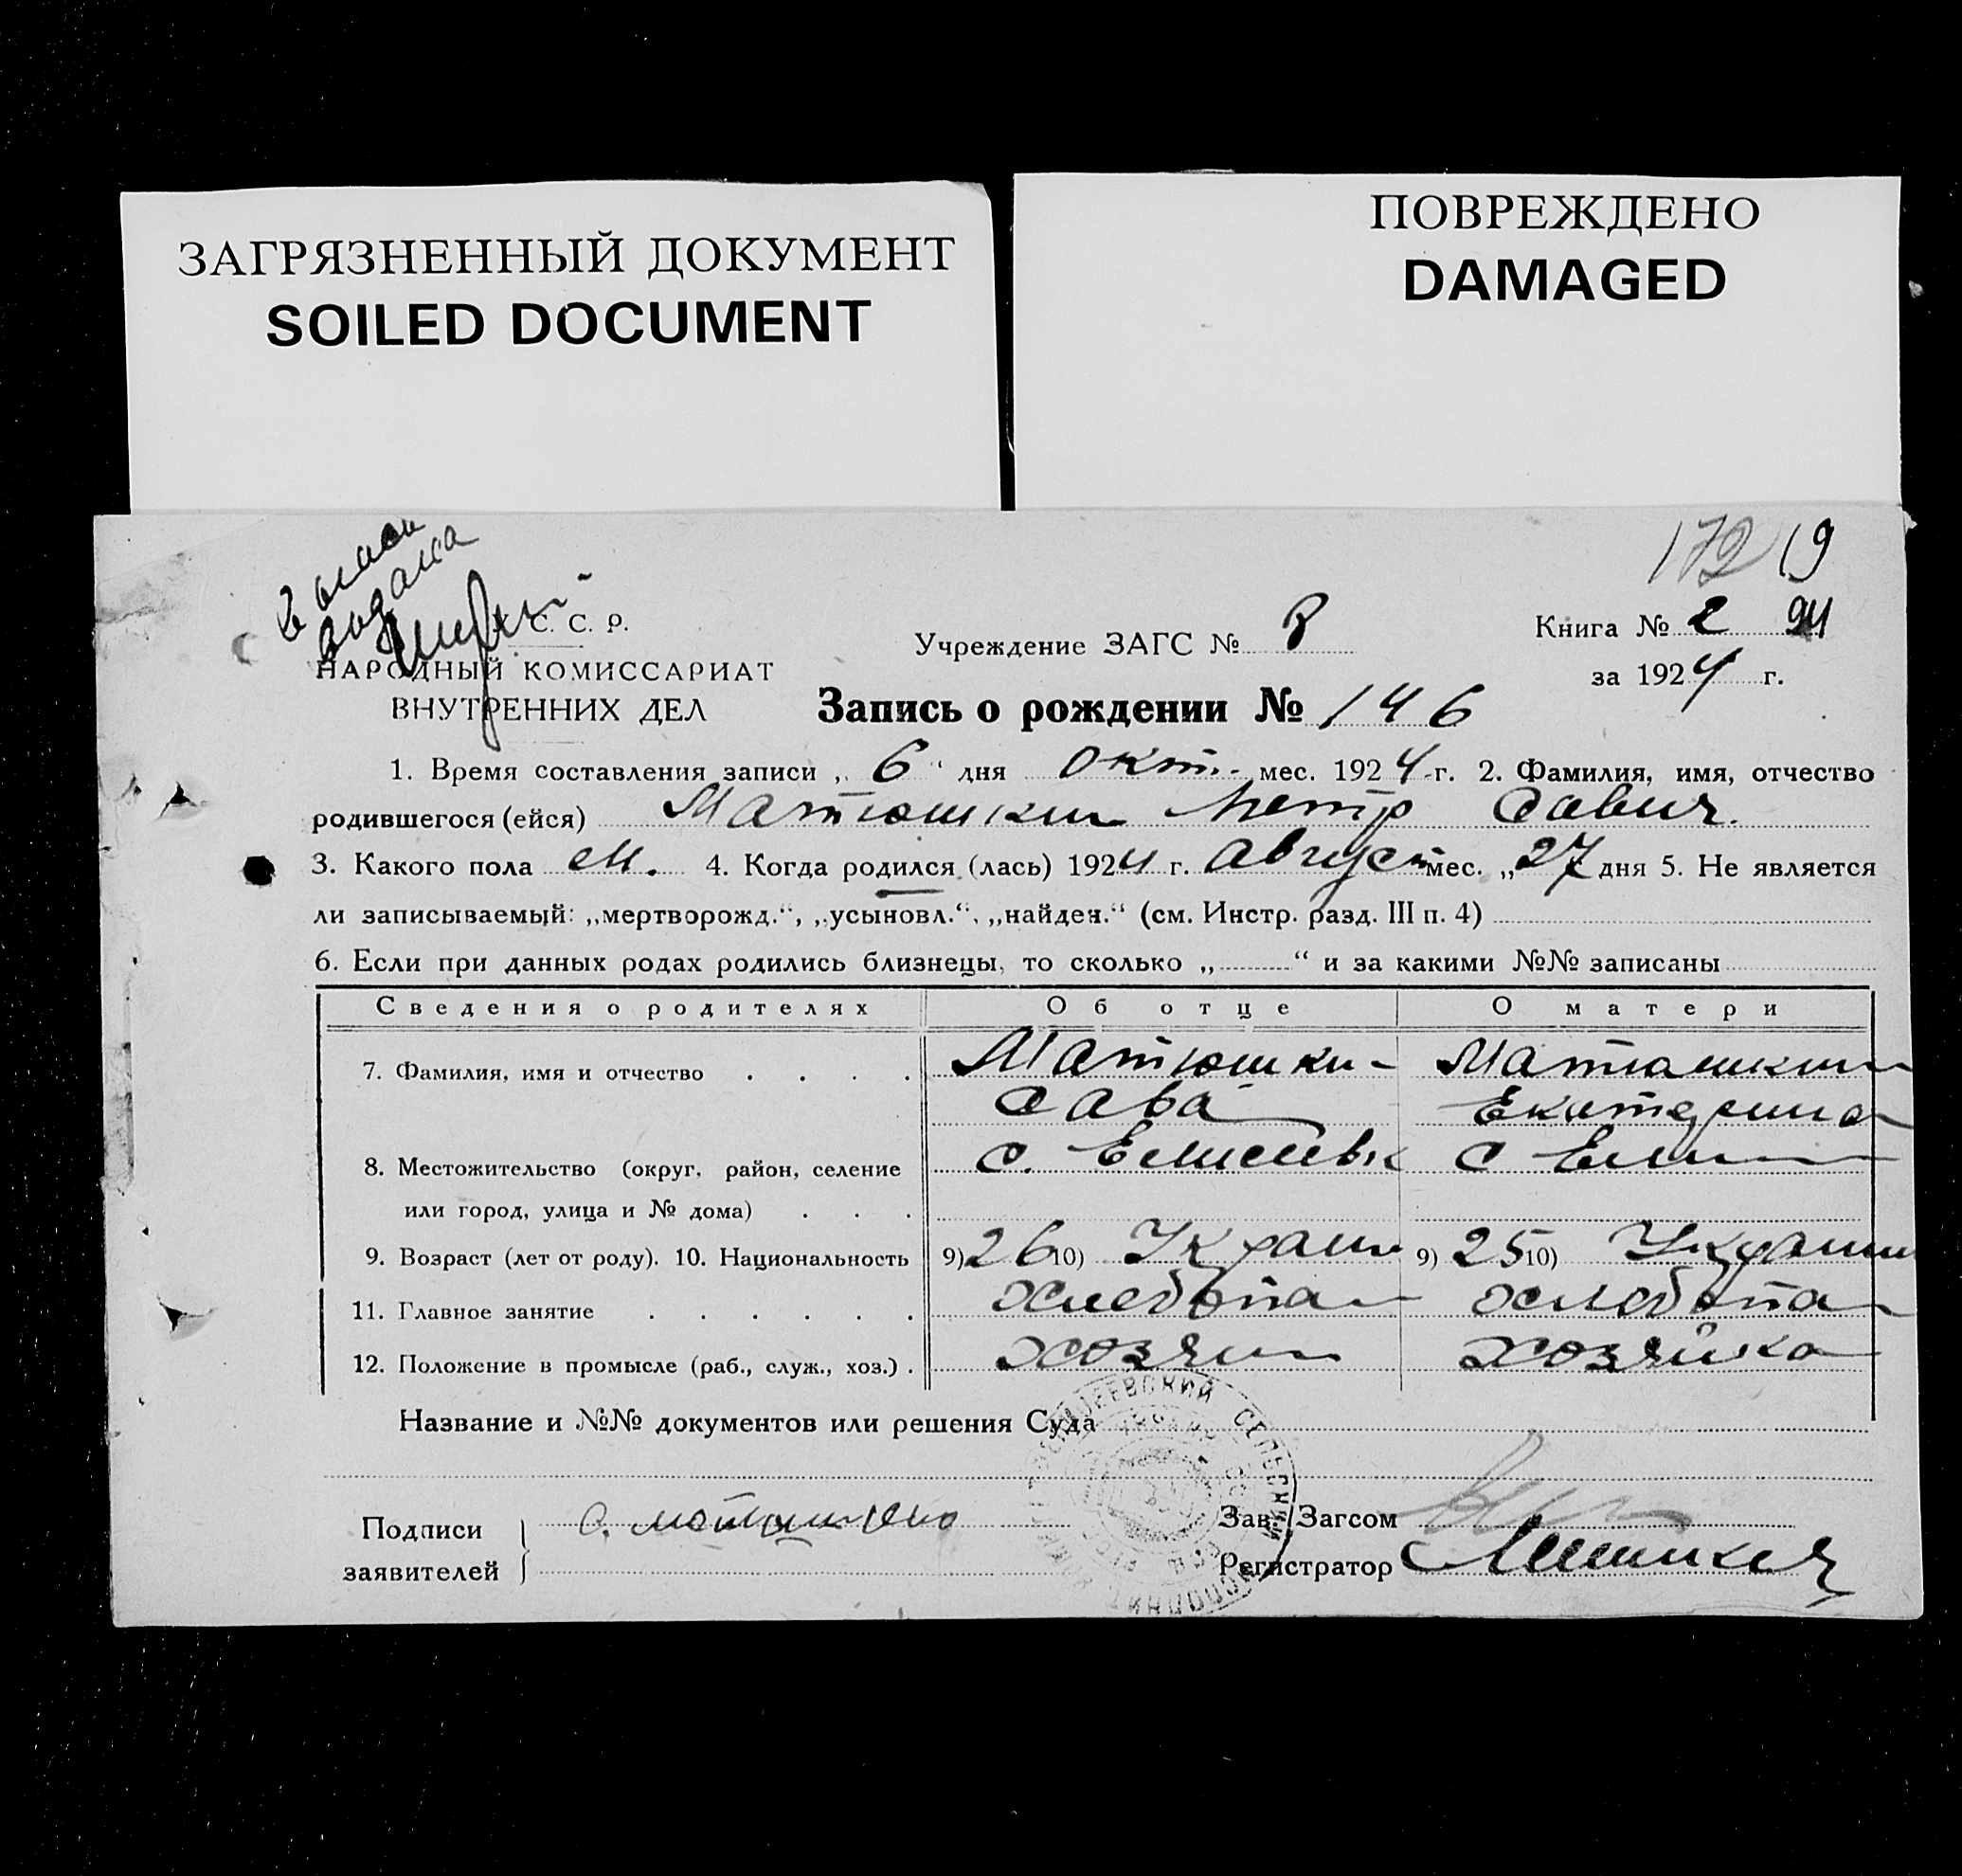 ЗАГРЯЗНЕННЫЙ ДОКУМЕНТ
SOILED DOCUMENT
ПОВРЕЖДЕНО
DAMAGED
172 19
выдана
С. С. Р.
НАРОДНЫЙ КОМИССАРИАТ
ВНУТРЕННИХ ДЕЛ
Учреждение ЗАГС №
Книга № 2
за 1924 г.
Запись о рождении № 146
1. Время составления записи „ 6 “ дня окт. мес. 1924 г. 2. Фамилия, имя, отчество
родившегося (ейся) Матюшкин Петр Савич.
3. Какого пола м. 4. Когда родился (лась) 1924 г. Август мес. „27 дня 5. Не является
ли записываемый: „мертворожд.“, „усыновл.“, „найден.“ (см. Инстр. разд. III п. 4)
6. Если при данных родах родились близнецы, то сколько „ “ и за какими №№ записаны
Сведения о родителях Об отце О матери
7. Фамилия, имя и отчество . . . . Матюшки- Матюшкин
Сава Екатерина
8. Местожительство (округ, район, селение с. Елисеевк с Ели
или город, улица и № дома) . . .
9. Возраст (лет от роду). 10. Национальность 9) 26 10) Украин 9) 25 10) Украин
11. Главное занятие . . . . . . Хлебопа Хлебопа
12. Положение в промысле (раб., служ., хоз.) . хозяин хозяйка
Название и №№ документов или решения Суда
СЕЛЬСКИЙ
Подписи
заявителей
Зав. Загсом
Регистратор